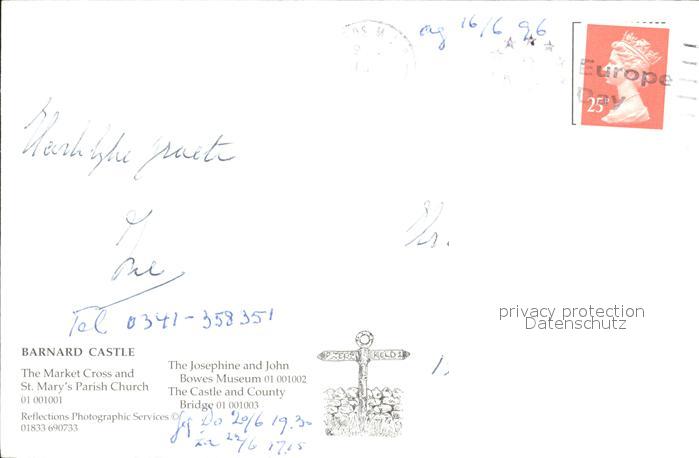 16/6 96
Europe
Day
25P
Hartelijke groeten
Tel 0341-358351
privacy protection
Datenschutz
BARNARD CASTLE
The Market Cross and
St. Mary's Parish Church
01 001001
The Josephine and John
Bowes Museum 01 001002
The Castle and County
Bridge 01 001003
Reflections Photographic Services ©
01833 690733
Do 20/6 19.30
22/6 17.15